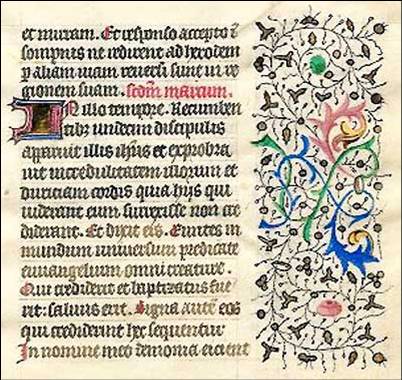 et mirram. Et responso accepto ī
sompnis ne redirent ad herodem
p aliam uiam reuersi sunt in re
gionem suam. scdm marcum.
IN illo tempore. Recumben
tibz undecim discipulis
apparuit illis ihsus et exprobra
uit incredulitatem illorum et
duriciam cordis quia hijs qui
uiderant eum surrexisse non cre
diderant. Et dixit eis. Euntes in
mundum uniuersum predicate
euuangelium omni creature.
Qui crediderit et baptizatus fue
rit: saluus erit. Signa autē eos
qui crediderint hec sequentur
In nomine meo demonia eicient